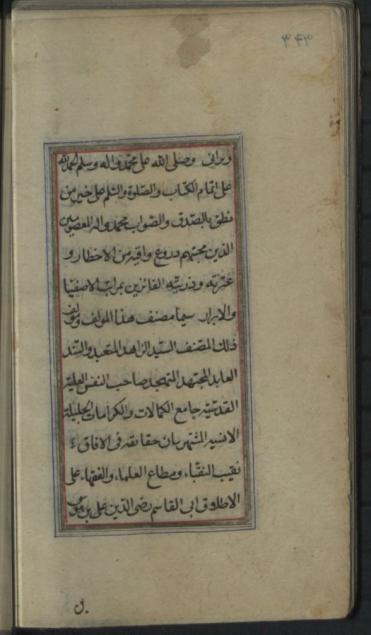 ۳۴۳
ویرانی وصلی الله علی محمد واله وسلم الحمد لله
علی اتمام الکتاب والصلوة والسلم علی خیر من
نطق بالصدق والصواب محمد واله المعصومین
الذین محبتهم دروع واقیه من الاخطار و
عترته وذریته الفائزین بمراتب الاصفیا
والابرار سیما مصنف هذا المؤلف ومؤلف
ذلک المصنف السید الزاهد المتعبد والسند
العابد المجتهد المتهجد صاحب النفس العلیة
القدسیة جامع الکمالات والکرامات الجلیلة
الانسیه المشتهر بان حقائقه فی الافاق
نقیب النقباء ومطاع العلماء والفقهاء علی
الاطلاق ابی القاسم رضی الدین علی بن موسی